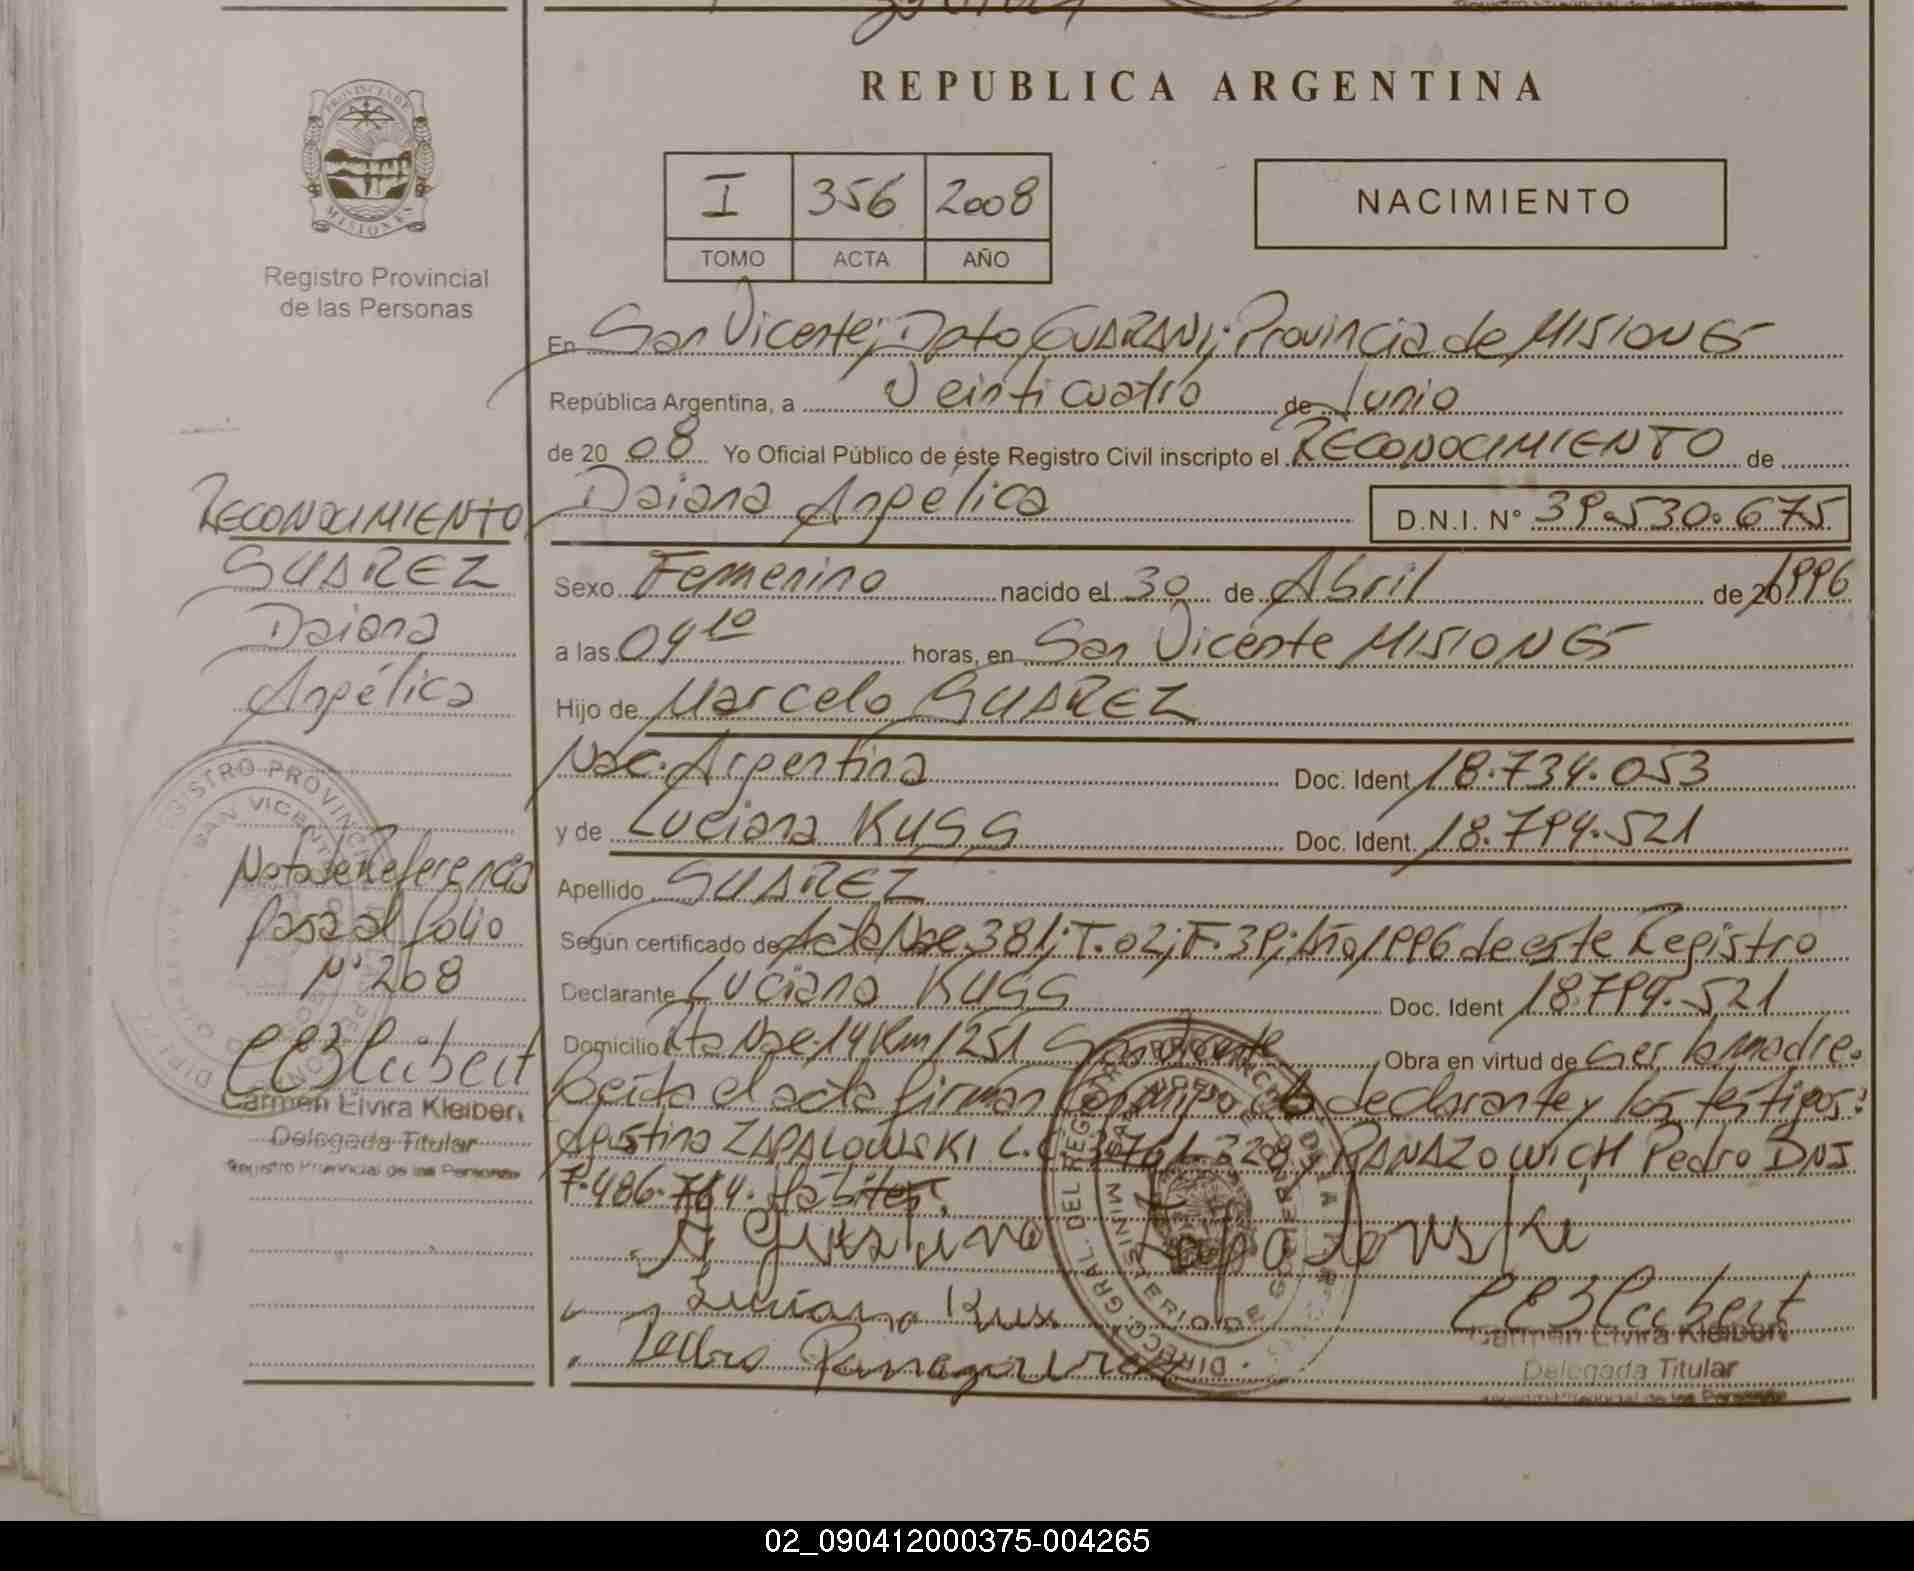 REPUBLICA ARGENTINA
PROVINCIA DE MISIONES
Registro Provincial
de las Personas
I 356 2008
TOMO ACTA AÑO
NACIMIENTO
En San Vicente; Dpto GUARANI; Provincia de MISIONES
República Argentina, a Veinticuatro de Junio
de 20 08 Yo Oficial Público de éste Registro Civil inscripto el RECONOCIMIENTO de
Daiana Angélica D.N.I. N° 39.530.675
Sexo Femenino nacido el 30 de Abril de 20 1996
a las 04 10 horas, en San Vicente MISIONES
Hijo de Marcelo SUAREZ
Nac. Argentina Doc. Ident. 18.734.053
y de Luciana KUSS Doc. Ident. 18.794.521
Apellido SUAREZ
Según certificado de Acta Nac. 381; T. 02; F. 39; Año 1996 de este Registro
Declarante Luciana KUSS Doc. Ident 18.794.521
Domicilio Rta Nac. 14 Km 1251 San Vicente Obra en virtud de ser la madre.
Leída el acta firman conmigo la declarante y los testigos:
Agustina ZAPALOWSKI L.C. 3.761.328 y PANAZOWICH Pedro DNI
7.486.764.
Agustina Zapalowski
Luciana Kuss
Pedro
Carmen Elvira Kleibert
Delegada Titular
Registro Provincial de las Personas
RECONOCIMIENTO
SUAREZ
Daiana
Angélica
Nota de Referencia
pasa al folio
N° 268
Carmen Elvira Kleibert
Delegada Titular
Registro Provincial de las Personas
02_090412000375-004265